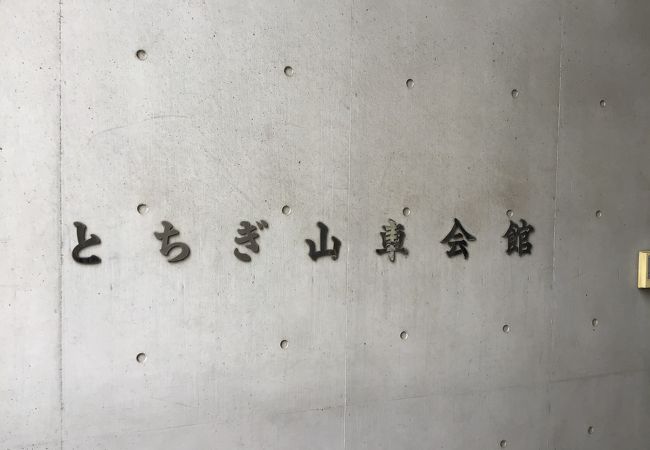 とちぎ山車会館